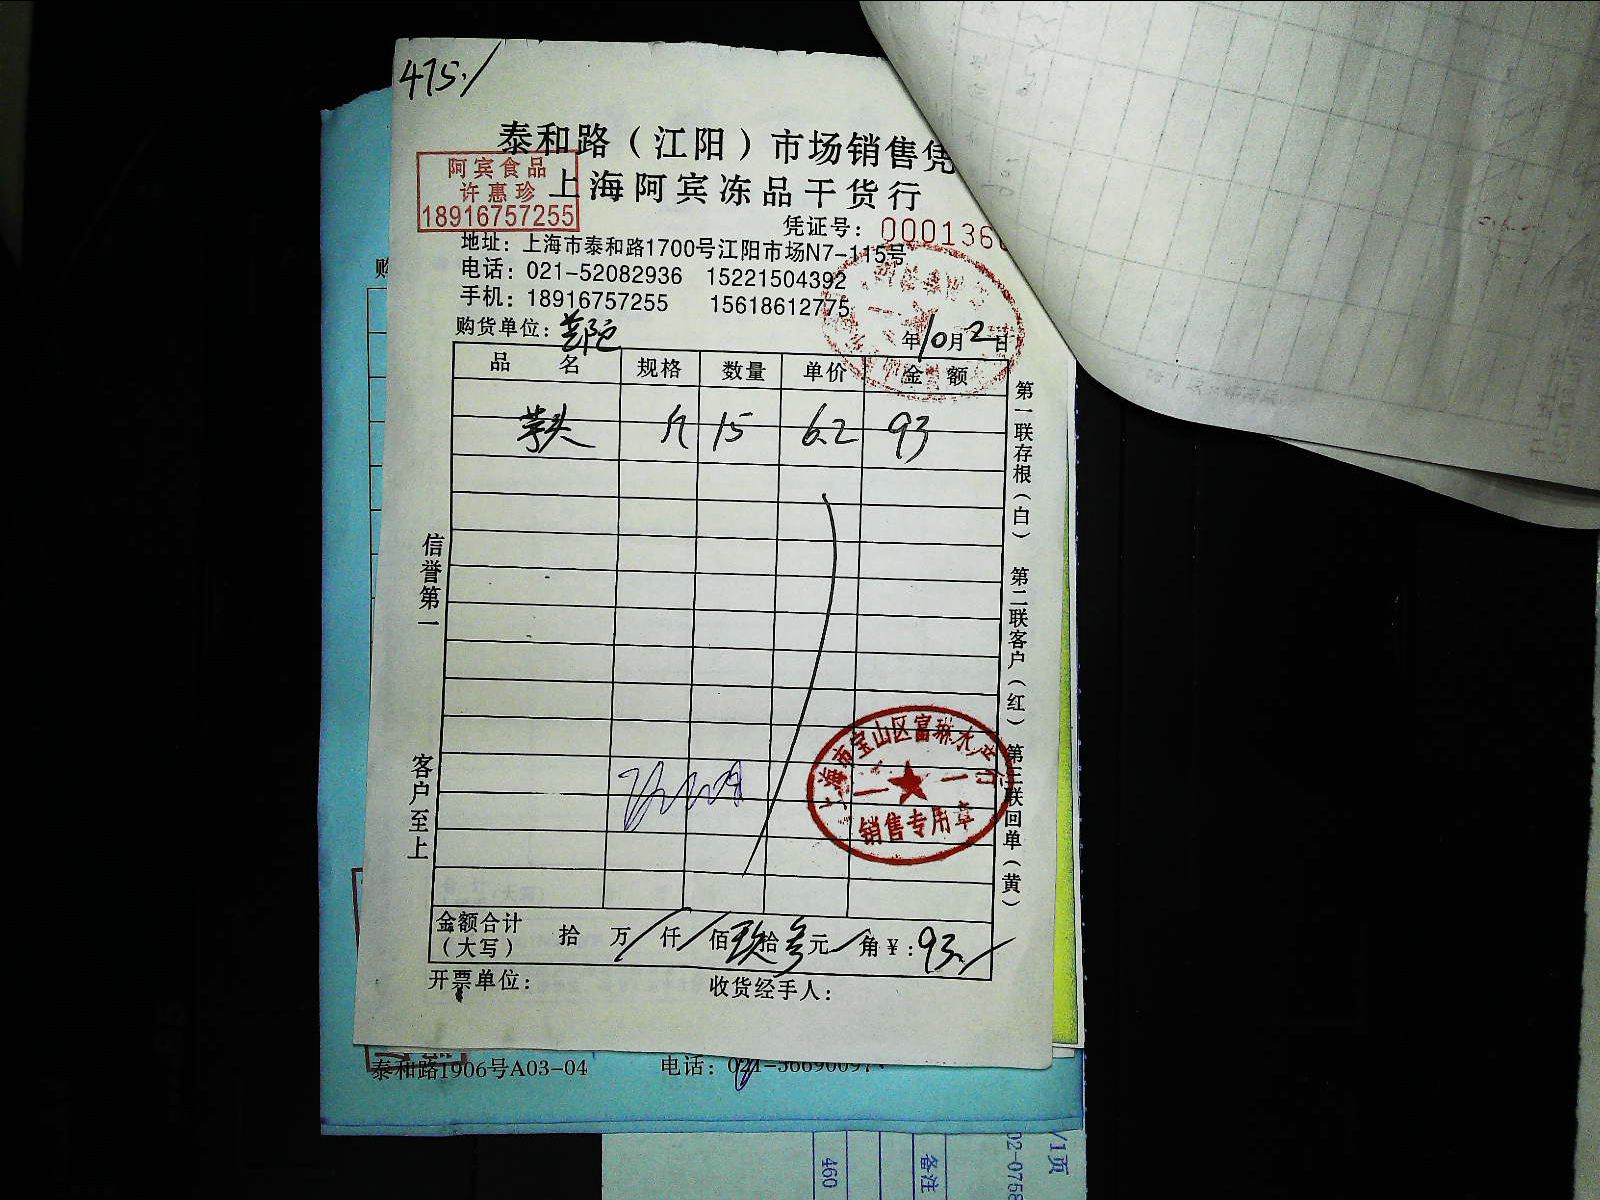 475./
泰和路（江阳）市场销售凭
阿宾食品
许惠珍
18916757255
上海阿宾冻品干货行
凭证号：000136
地址：上海市泰和路1700号江阳市场N7-115号
电话：021-52082936 15221504392
手机：18916757255 15618612775
购货单位：
年10月2日
品名 规格 数量 单价 金额
芋头 斤 15 6.2 93
第一联存根（白） 第二联客户（红） 第三联回单（黄）
信誉第一
客户至上
上海市宝山区富琳水产行
销售专用章
金额合计（大写） 拾 万 / 仟 / 佰 玖 拾 叁 元 / 角 ¥：93./
开票单位：
收货经手人：
购
泰和路1906号A03-04 电话：
460
备注
02-0758
/1页